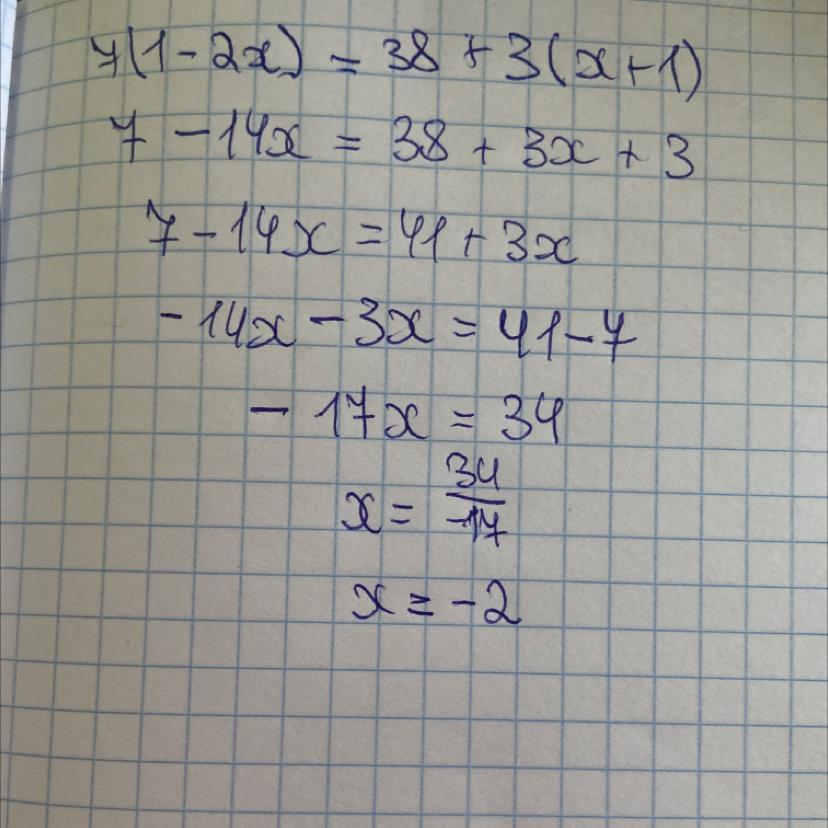 7(1-2x) = 38 + 3(x+1)
7 - 14x = 38 + 3x + 3
7 - 14x = 41 + 3x
- 14x - 3x = 41 - 7
- 17x = 34
x = 34/-17
x = -2